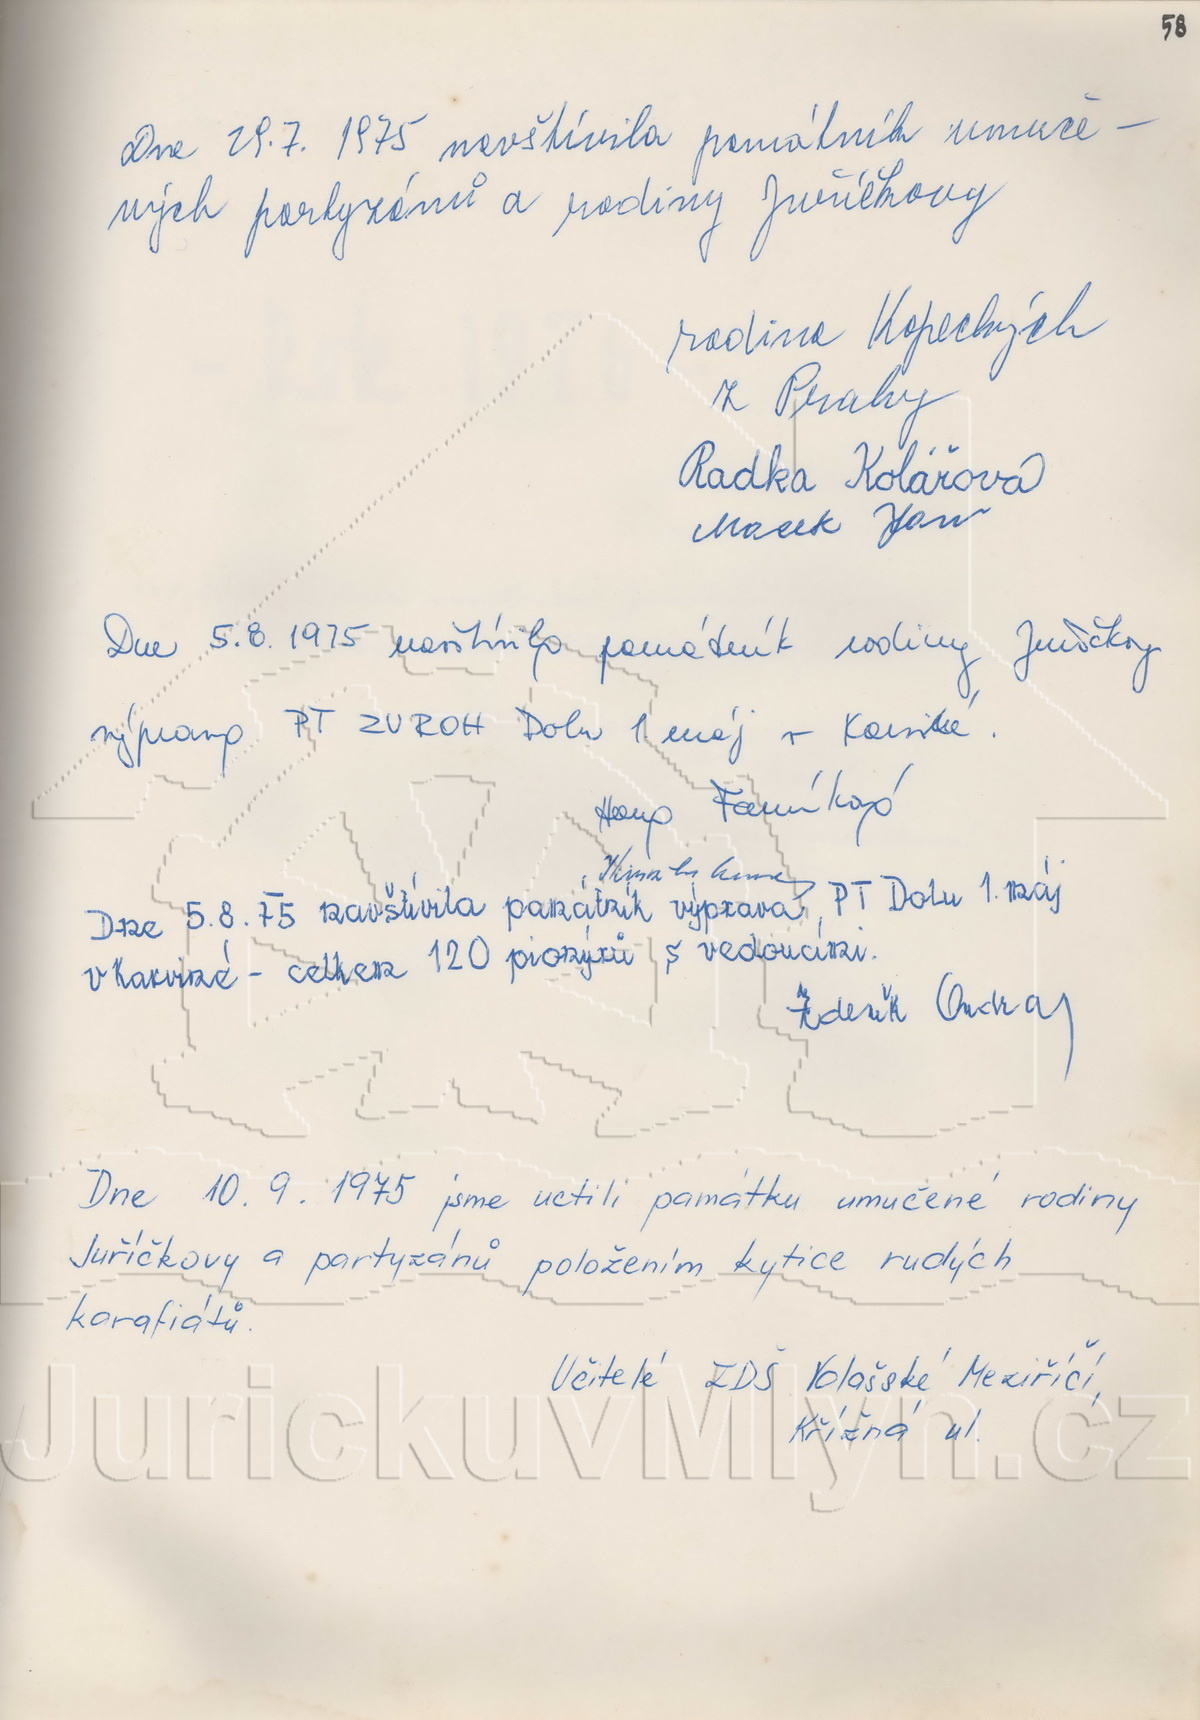 58
Dne 29.7. 1975 navštívila památník umuče-
ných partyzánů a rodiny Juříčkovy
rodina Kopeckých
z Prahy
Radka Kolářová
Macek Jan
Dne 5.8.1975 navštívila památník rodiny Juříčkovy
výprava PT ZV ROH Dolu 1 máj v Karviné.
Hana
Dne 5.8.75 navštívila památník výprava PT Dolu 1. máj
v Karviné - celkem 120 pionýrů s vedoucími.
Zdeněk Ondra
Dne 10.9.1975 jsme uctili památku umučené rodiny
Juříčkovy a partyzánů položením kytice rudých
karafiátů.
Učitelé ZDŠ Valašské Meziříčí,
Křížná ul.
JurickuvMlyn.cz